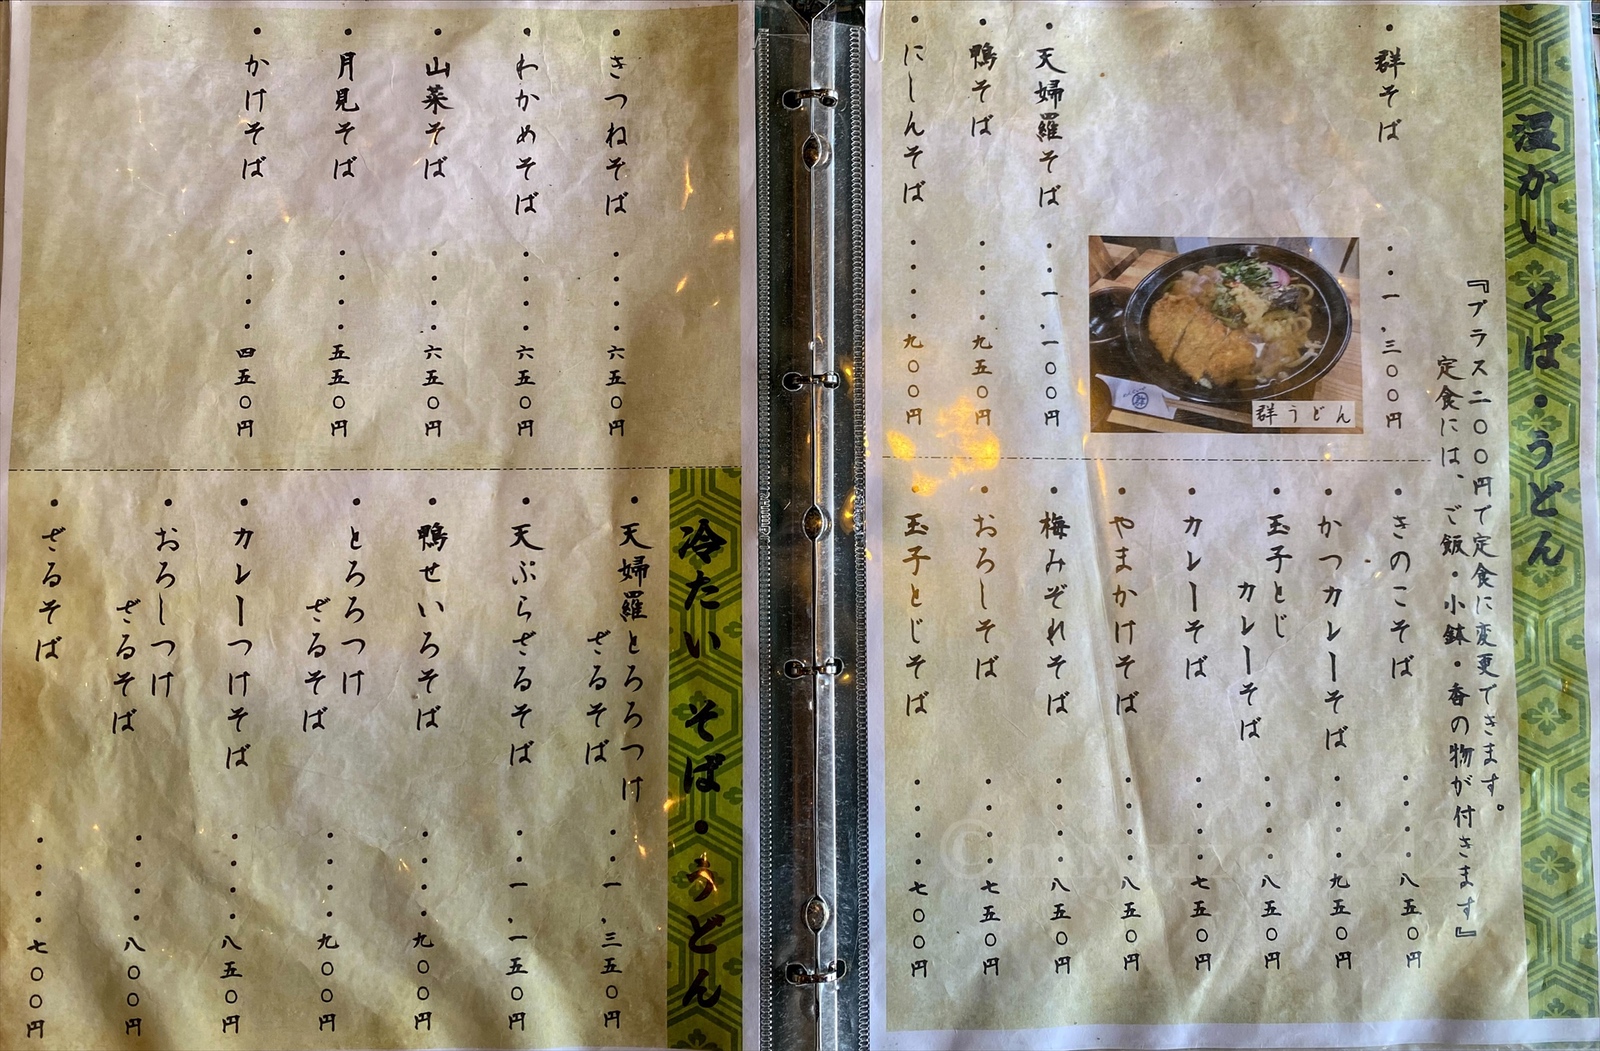 温かい そば・うどん
『プラス二〇〇円で定食に変更できます。
定食には、ご飯・小鉢・香の物が付きます』
・群そば・・・一、三〇〇円
群うどん
・天婦羅そば・・・一、一〇〇円
・鴨そば・・・・九五〇円
・にしんそば・・・・九〇〇円
・きのこそば・・・・八五〇円
・かつカレーそば・・・・九五〇円
・玉子とじ
カレーそば・・・・八五〇円
・カレーそば・・・・七五〇円
・やまかけそば・・・・八五〇円
・梅みぞれそば・・・・八五〇円
・おろしそば・・・・七五〇円
・玉子とじそば・・・・七〇〇円
・きつねそば・・・・・六五〇円
・わかめそば・・・・・六五〇円
・山菜そば・・・・・六五〇円
・月見そば・・・・・五五〇円
・かけそば・・・・・四五〇円
冷たい そば・うどん
・天婦羅とろろつけ
ざるそば・・・一、三五〇円
・天ぷらざるそば・・・一、一五〇円
・鴨せいろそば・・・・九〇〇円
・とろろつけ
ざるそば・・・・九〇〇円
・カレーつけそば・・・・八五〇円
・おろしつけ
ざるそば・・・・八〇〇円
・ざるそば・・・・七〇〇円